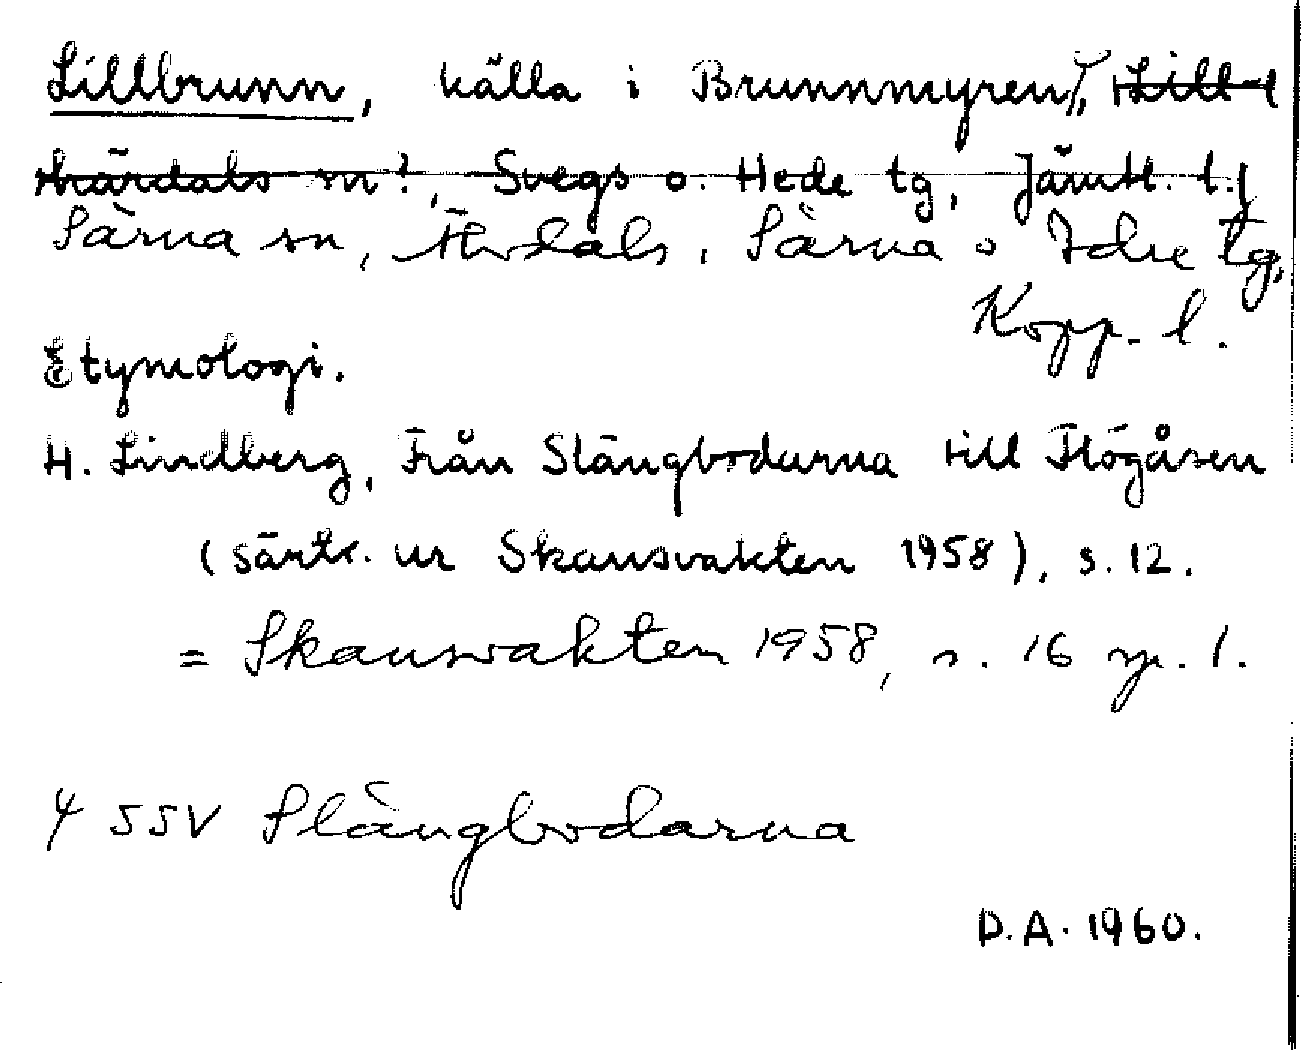 Lillbrunn, källa i Brunnmyren⁴, Lill-
härdals sn?, Svegs o. Hede tg, Jämtl. l.
Särna sn, Älvdals, Särna o Idre tg,
Kopp. l.
Etymologi.
H. Lindberg, Från Slängbodarna till Flögåsen
(särtr. ur Skansvakten 1958), s. 12.
= Skansvakten 1958, s. 16 sp. 1.
SSV Slängbodarna
D.A. 1960.